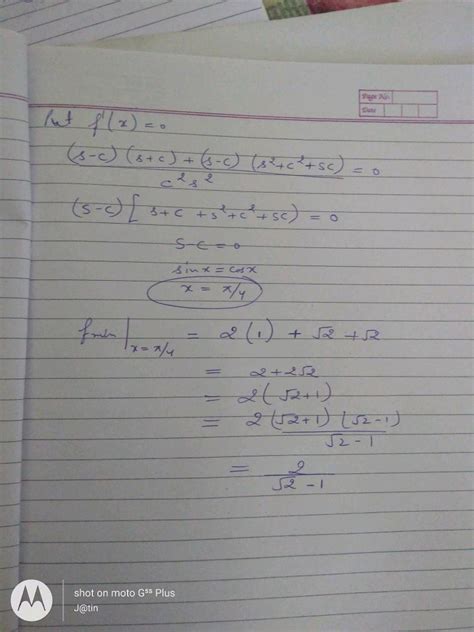 Page No.
Date
Put f'(x) = 0
(s-c) (s+c) + (s-c) (s²+c²+sc) = 0
c²s²
(s-c) [ s+c + s²+c²+sc) = 0
s-c = 0
sinx = cosx
x = π/4
fmin|x=π/4 = 2(1) + √2 + √2
= 2+2√2
= 2(√2+1)
= 2(√2+1) (√2-1)
√2-1
= 2
√2-1
shot on moto G⁵ˢ Plus
J@tin